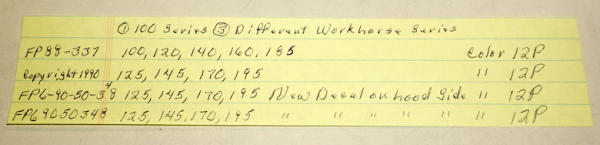 ① 100 Series ③ Different Workhorse Series
FP89-337 100, 120, 140, 160, 185 Color 12P
Copyright 1990 125, 145, 170, 195 " 12P
FP6-90-50-348 125, 145, 170, 195 New Decal on hood Side " 12P
FP69050348 125, 145, 170, 195 " " " " " " 12P